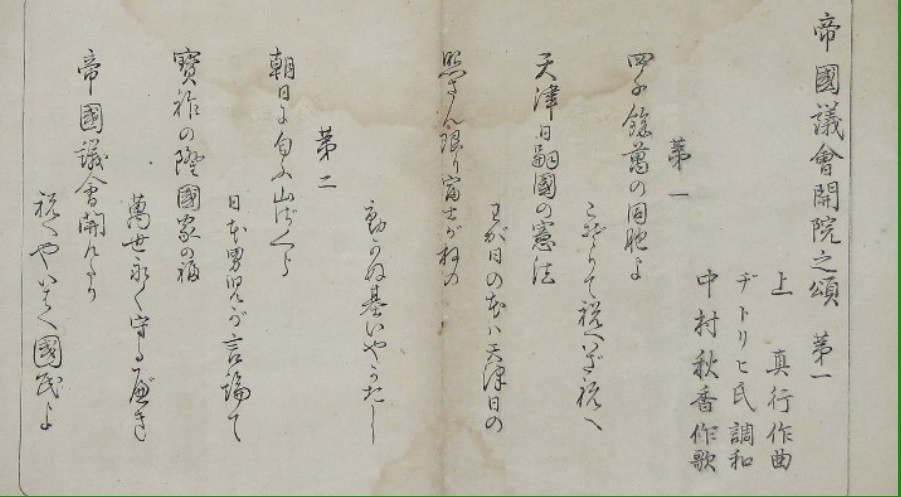 帝國議會開院之頌 第一
上真行作曲
ヂトリヒ氏調和
中村秋香作歌
第一
四千餘萬の同胞よ
こぞりて祝へいざ祝へ
天津日嗣國の憲法
わが日の本ハ天津日の
照さん限り富士がねの
動かぬ基いやかたし
第二
朝日に匂ふ山ざくら
日本男児が言論て
寳祚の隆國家の福
萬世永く守るべき
帝國議會開けたり
祝へやいはへ國民よ